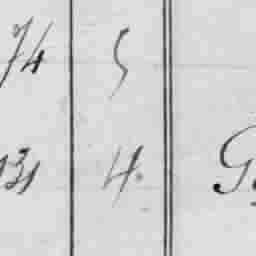 74 5
131 4.